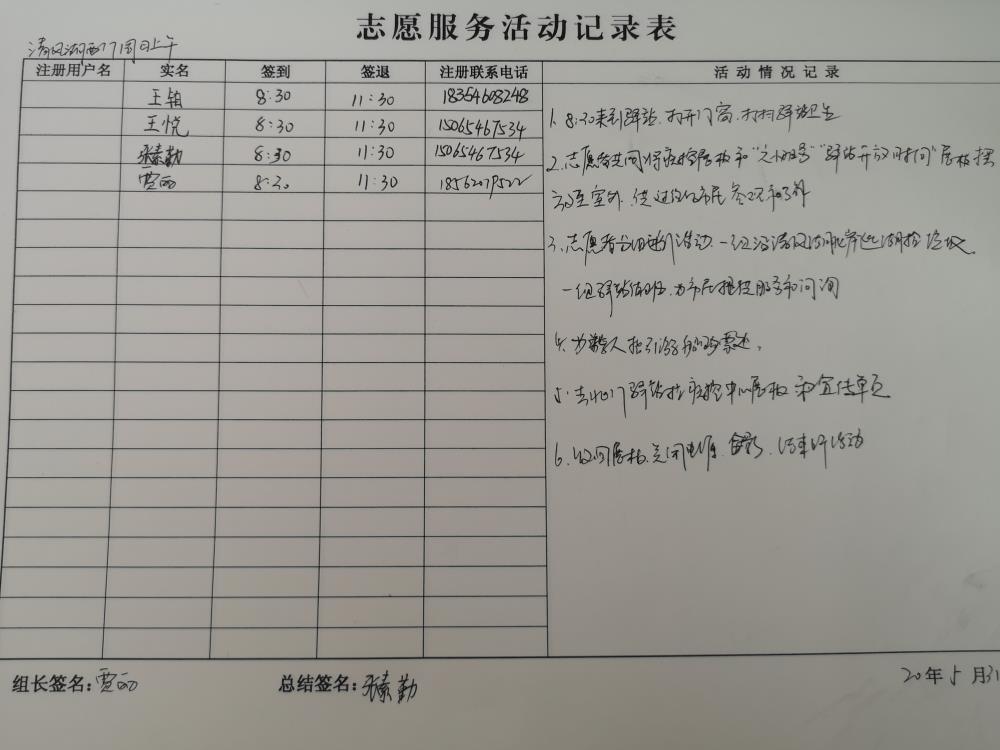 志愿服务活动记录表
清风湖西门周日上午
注册用户名 实名 签到 签退 注册联系电话 活动情况记录
王铂 8:30 11:30 18354608248
王悦 8:30 11:30 15065467534
张素勤 8:30 11:30 15065467534
贾丽 8:30 11:30
1. 8:30来到驿站,打开门窗,打扫驿站卫生
2.志愿者共同将疾控展板和 "驿站开放时间"展板摆
至室外,供过往的市民参观和了解
3.志愿者分组进行活动,一组沿清风湖 捡垃圾,
一组驿站值班,为市民提供服务和问询
4.为 人指引
5.去北门驿站拉疾控中心展板和宣传单页
6.收回展板,关闭电源、 ,结束所活动
组长签名:贾丽 总结签名:张素勤 20年5月31